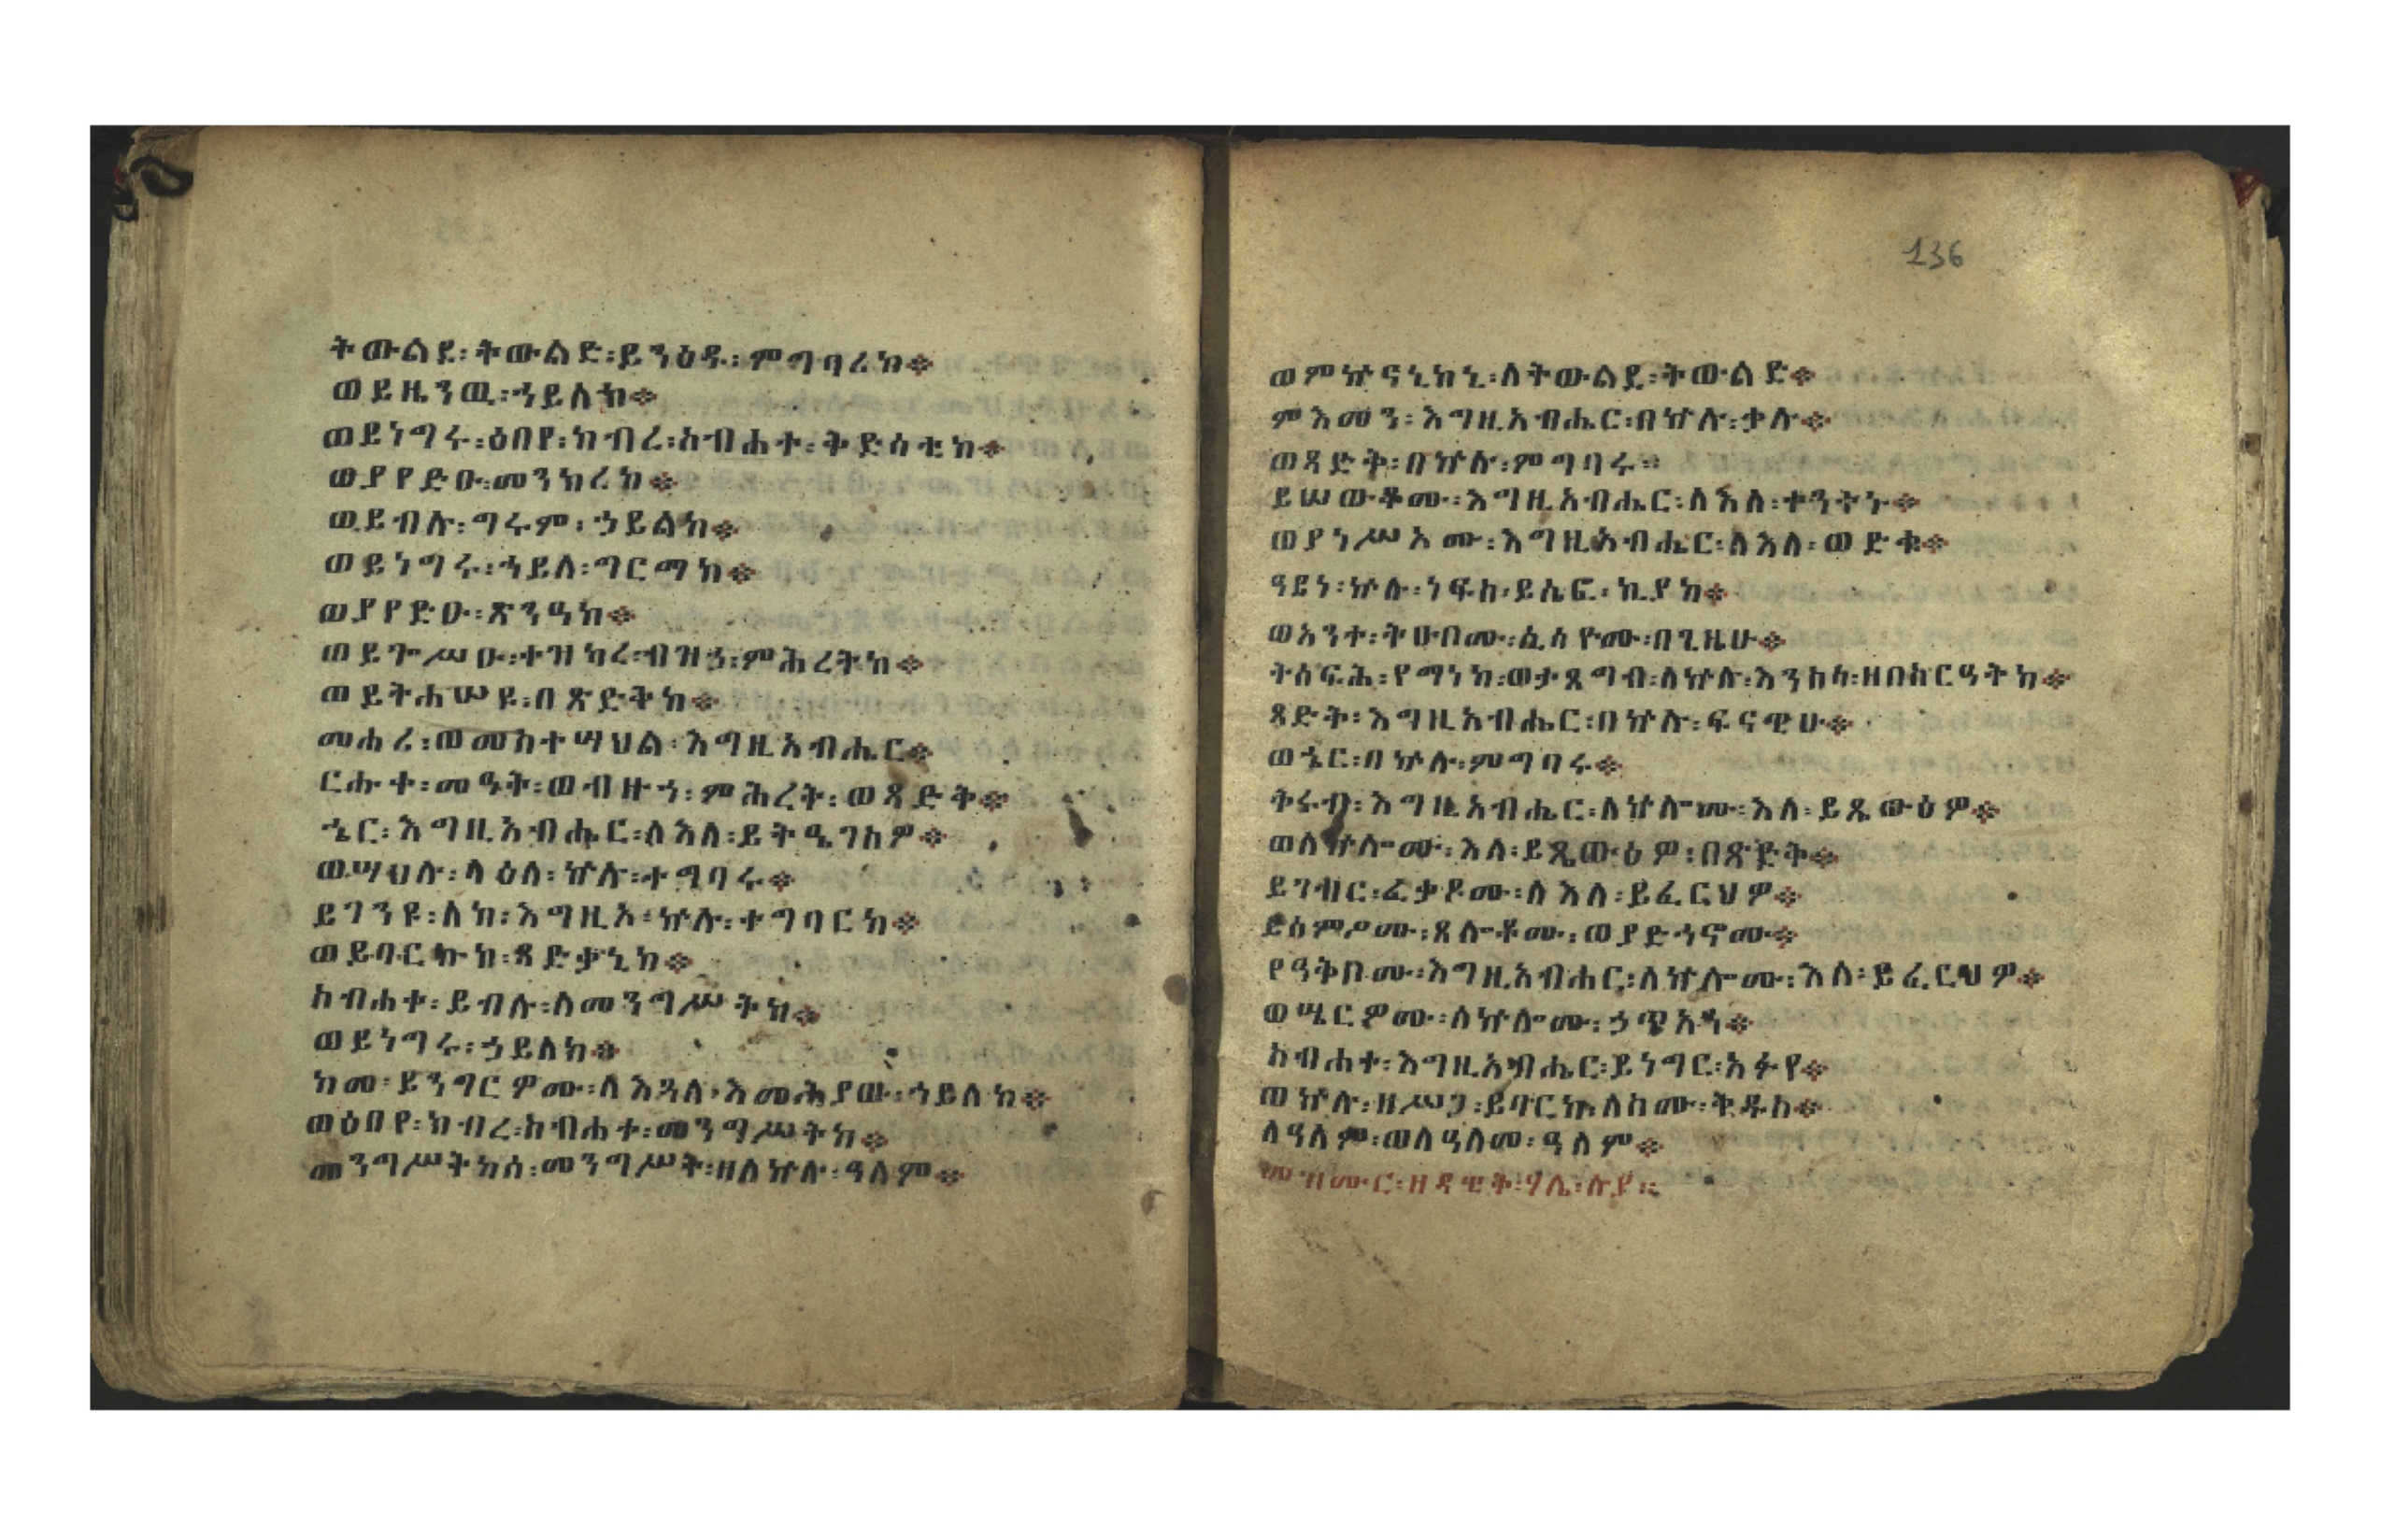 ትውልደ፡ትውልድ፡ይንዕዱ፡ምግባረከ።
ወይዜንዉ፡ኀይለከ።
ወይነግሩ፡ዕበየ፡ክብረ፡ስብሐተ፡ቅድሳቲከ።
ወያየድዑ፡መንክረከ።
ወይብሉ፡ግሩም፡ኃይልከ።
ወይነግሩ፡ኀይለ፡ግርማከ።
ወያየድዑ፡ጽንዓከ።
ወይጐሥዑ፡ተዝካረ፡ብዝኃ፡ምሕረትከ።
ወይትሐሠዩ፡በጽድቅከ።
መሐሪ፡ወመስተሣህል፡እግዚአብሔር።
ርሑቀ፡መዓት፡ወብዙኀ፡ምሕረት፡ወጻድቅ።
ኄር፡እግዚአብሔር፡ለእለ፡ይትዔገስዎ።
ወሣህሉ፡ላዕለ፡ኵሉ፡ተግባሩ።
ይገንዩ፡ለከ፡እግዚኦ፡ኵሉ፡ተግባርከ።
ወይባርኩከ፡ጻድቃኒከ።
ስብሐተ፡ይብሉ፡ለመንግሥትከ።
ወይነግሩ፡ኃይለከ።
ከመ፡ይንግርዎሙ፡ለእጓለ፡እመሕያው፡ኀይለከ።
ወዕበየ፡ክብረ፡ስብሐተ፡መንግሥትከ።
መንግሥትከሰ፡መንግሥት፡ዘለኵሉ፡ዓለም።
136
ወምኵናኒከኒ፡ለትውልደ፡ትውልድ።
ምእመን፡እግዚአብሔር፡በኵሉ፡ቃሉ።
ወጻድቅ፡በኵሉ፡ምግባሩ።
ይሠውቆሙ፡እግዚአብሔር፡ለእለ፡ተንትኑ።
ወያነሥኦሙ፡እግዚአብሔር፡ለእለ፡ወድቁ።
ዓይነ፡ኵሉ፡ነፍስ፡ይሴፎ፡ኪያከ።
ወአንተ፡ትሁቦሙ፡ሲሳዮሙ፡በጊዜሁ።
ትሰፍሕ፡የማነከ፡ወታጸግብ፡ለኵሉ፡እንስሳ፡ዘበሥርዓትከ።
ጻድቅ፡እግዚአብሔር፡በኵሉ፡ፍናዊሁ።
ወኄር፡በኵሉ፡ምግባሩ።
ቅሩብ፡እግዚአብሔር፡ለኵሎሙ፡እለ፡ይጼውዕዎ።
ወለኵሎሙ፡እለ፡ይጼውዕዎ፡በጽድቅ።
ይገብር፡ፈቃዶሙ፡ለእለ፡ይፈርህዎ።
ይሰምዖሙ፡ጸሎቶሙ፡ወያድኅኖሙ።
የዓቅቦሙ፡እግዚአብሔር፡ለኵሎሙ፡እለ፡ይፈርህዎ።
ወሤርዎሙ፡ለኵሎሙ፡ኃጥኣን።
ስብሐተ፡እግዚአብሔር፡ይነግር፡አፉየ።
ወኵሉ፡ዘሥጋ፡ይባርኵ፡ለስሙ፡ቅዱስ።
ለዓለም፡ወለዓለመ፡ዓለም።
መዝሙር፡ዘዳዊት፡ሃሌ፡ሉያ።